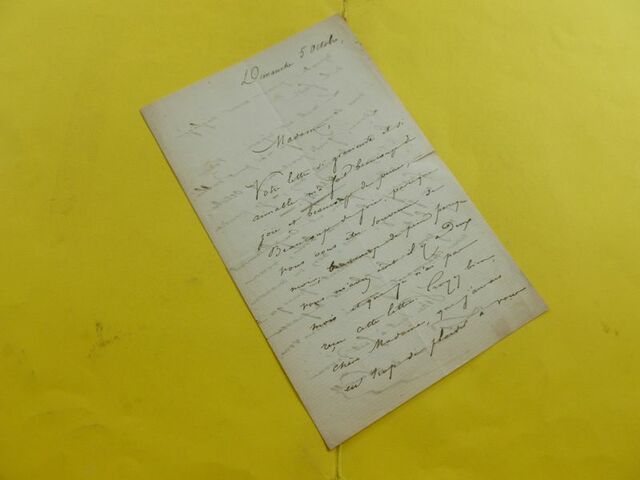 Dimanche 5 Octobre,
Madame,
Votre lettre si gracieuse et si
aimable m'a fait beaucoup de
joie et beaucoup de peine,
Beaucoup de joie, puisque
vous vous êtes souvenue de
moi, beaucoup de peine parce
que vous m'avez écrit il y a deux
mois et que je n'ai pas
reçu cette lettre. Croyez bien,
chère Madame, que j'aurais
eu trop de plaisir à vous